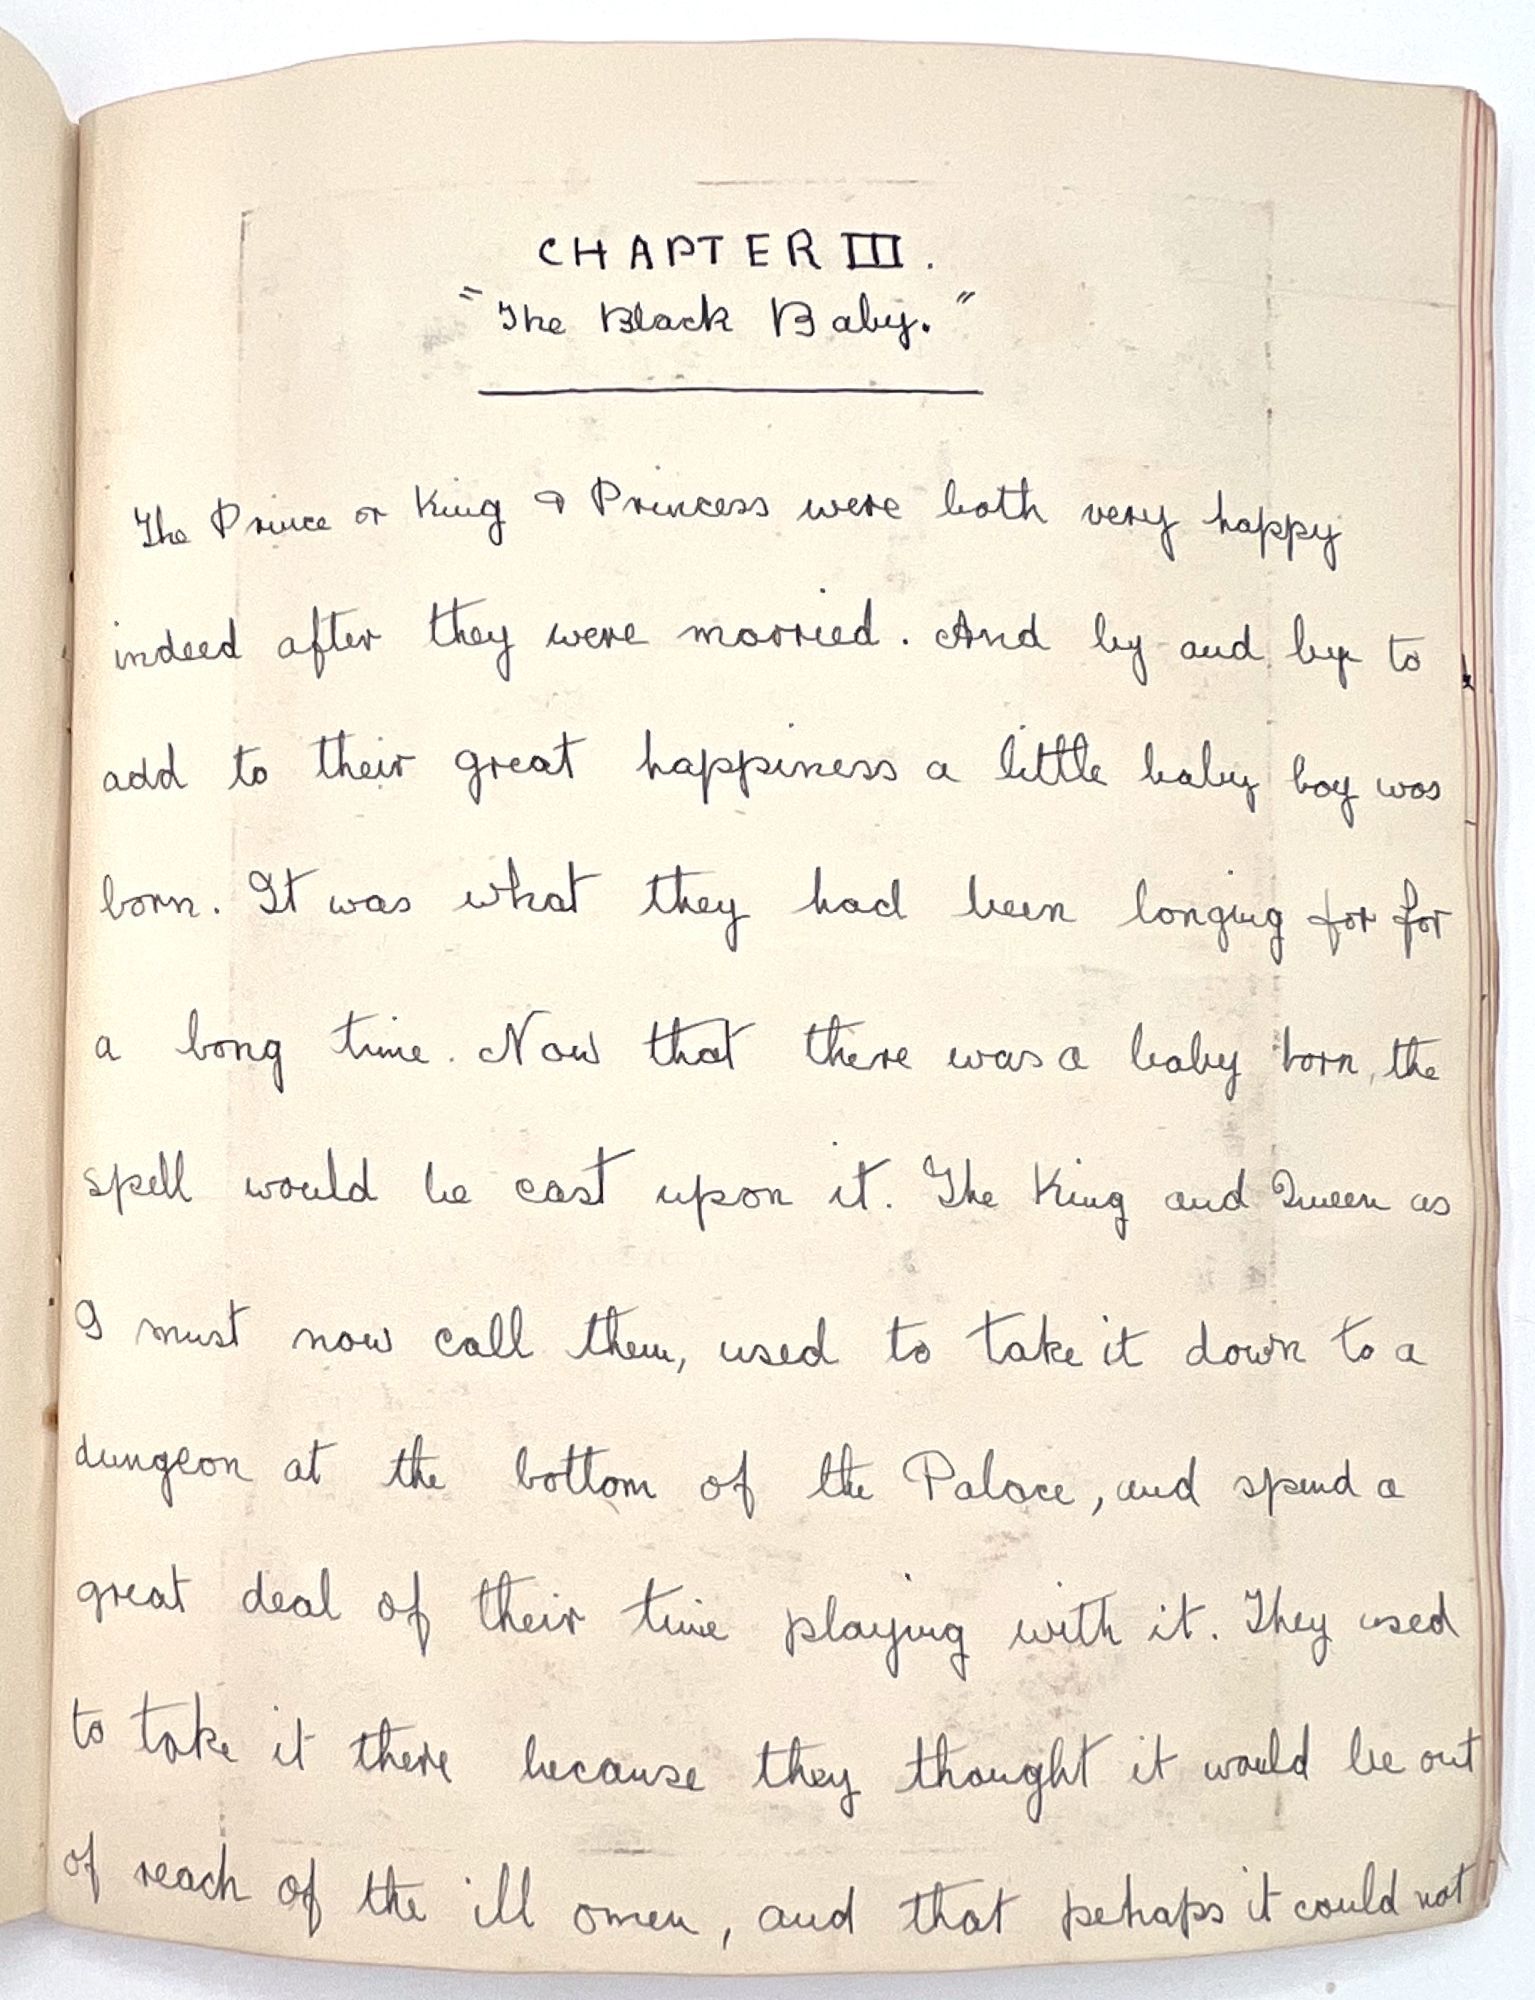 CHAPTER III.
"The Black Baby."
The Prince or King & Princess were both very happy
indeed after they were married. And by and by to
add to their great happiness a little baby boy was
born. It was what they had been longing for for
a long time. Now that there was a baby born, the
spell would be cast upon it. The King and Queen as
I must now call them, used to take it down to a
dungeon at the bottom of the Palace, and spend a
great deal of their time playing with it. They used
to take it there because they thought it would be out
of reach of the ill omen, and that pehaps it could not